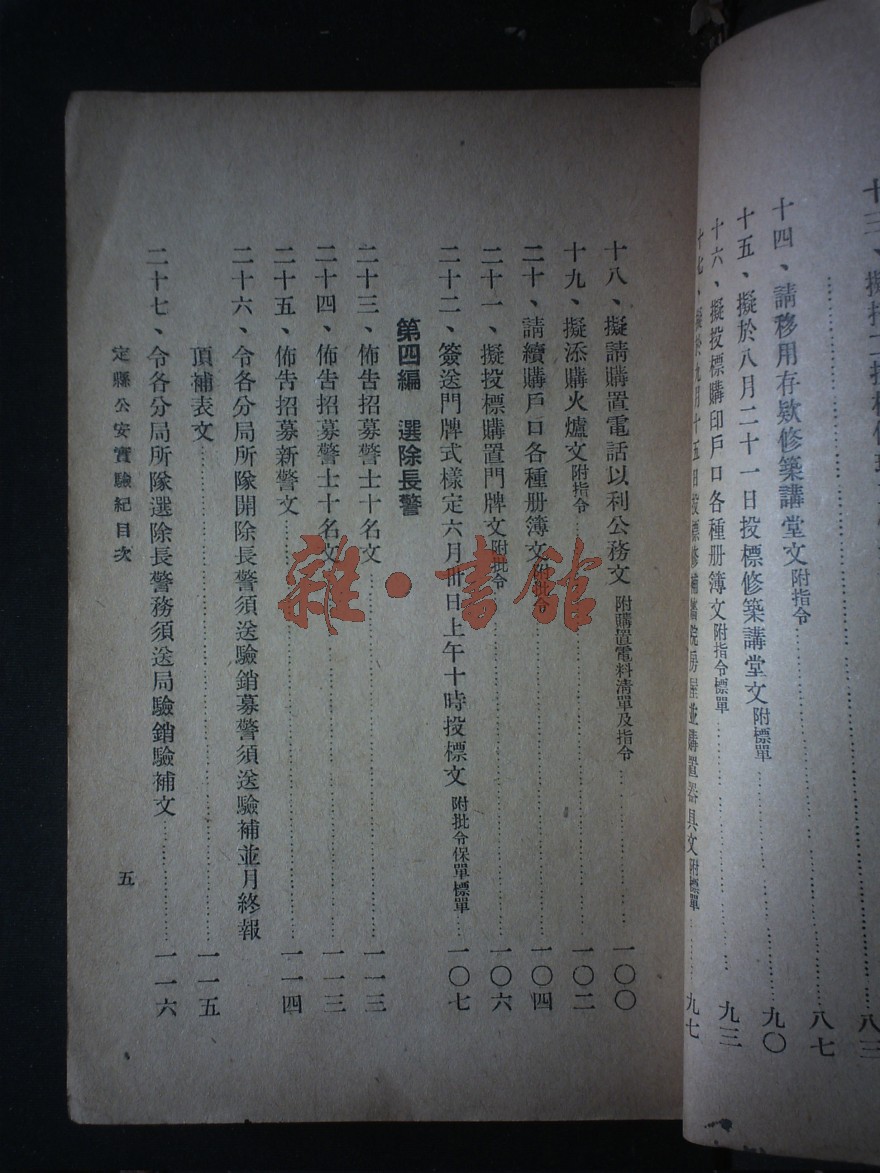 八三
八七
十四、請移用存欵修築講堂文 附指令 九〇
十五、擬於八月二十一日投標修築講堂文 附標單 九三
十六、擬投標購印戶口各種册簿文 附指令標單
十七、擬於九月十五日投標修補醫院房屋並購置器具文 附標單 九七
十八、擬請購置電話以利公務文 附購置電料清單及指令 一〇〇
十九、擬添購火爐文 附指令 一〇二
二十、請續購戶口各種册簿文 附批令 一〇四
二十一、擬投標購置門牌文 附批令 一〇六
二十二、簽送門牌式樣定六月卅日上午十時投標文 附批令保單標單 一〇七
第四編 選除長警
二十三、佈告招募警士十名文 一一三
二十四、佈告招募警士十名文 一一三
二十五、佈告招募新警文 一一四
二十六、令各分局所隊開除長警須送驗銷募警須送驗補並月終報
頂補表文 一一五
二十七、令各分局所隊選除長警務須送局驗銷驗補文 一一六
定縣公安實驗紀目次 五
雜·書館